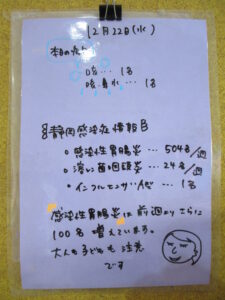 12月22日(水)
本日の
咳… 1名
咳・鼻水… 1名
静岡感染症情報
感染性胃腸炎… 504名/週
溶連菌咽頭炎… 24名/週
インフルエンザA型… 1名
感染性胃腸炎は前週よりさらに
100名増えています。
大人も子どもも注意
です